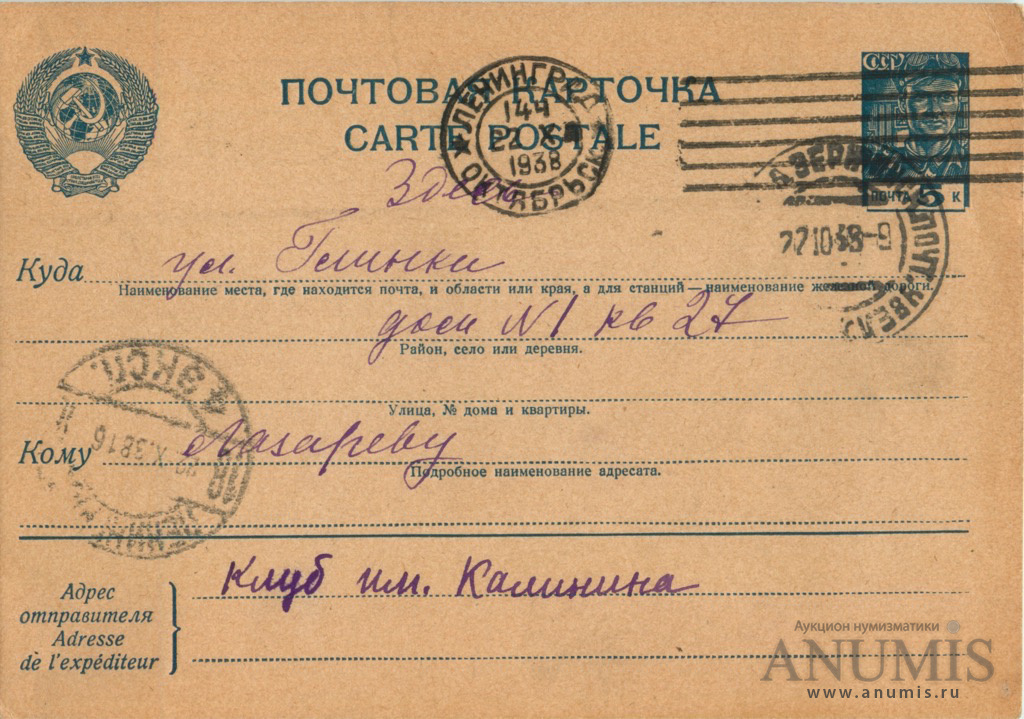 ПОЧТОВАЯ КАРТОЧКА
CARTE POSTALE
СССР
ПОЧТА 5 К
ЛЕНИНГРАД
144
22 X
1938
ОКТЯБРЬСК
22 10 38-9
Здесь
Куда ул. Глинки
Наименование места, где находится почта, и области или края, а для станций—наименование железной дороги.
дом N1 кв 27
Район, село или деревня.
Улица, № дома и квартиры.
4 ЭКСП.
X.38 16
Кому Лазареву
Подробное наименование адресата.
Адрес
отправителя
Adresse
de l'expéditeur
Клуб им. Калинина
Аукцион нумизматики
ANUMIS
www.anumis.ru